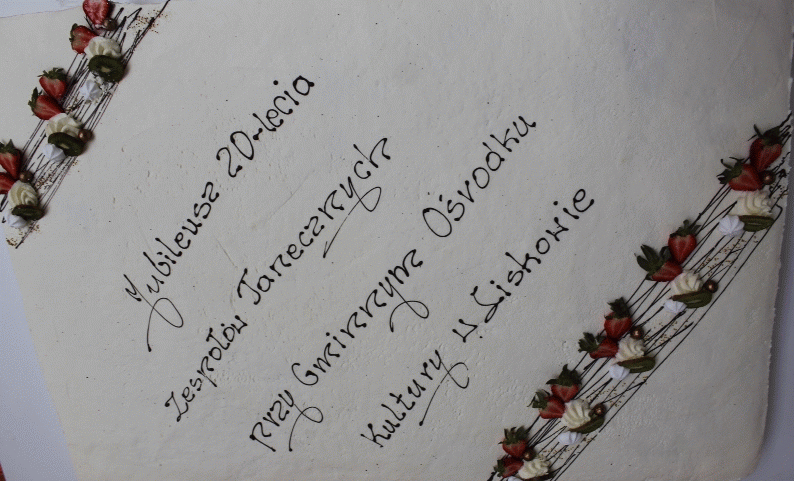 Jubileusz 20-lecia
Zespołów Tanecznych
przy Gminnym Ośrodku
Kultury w Liskowie